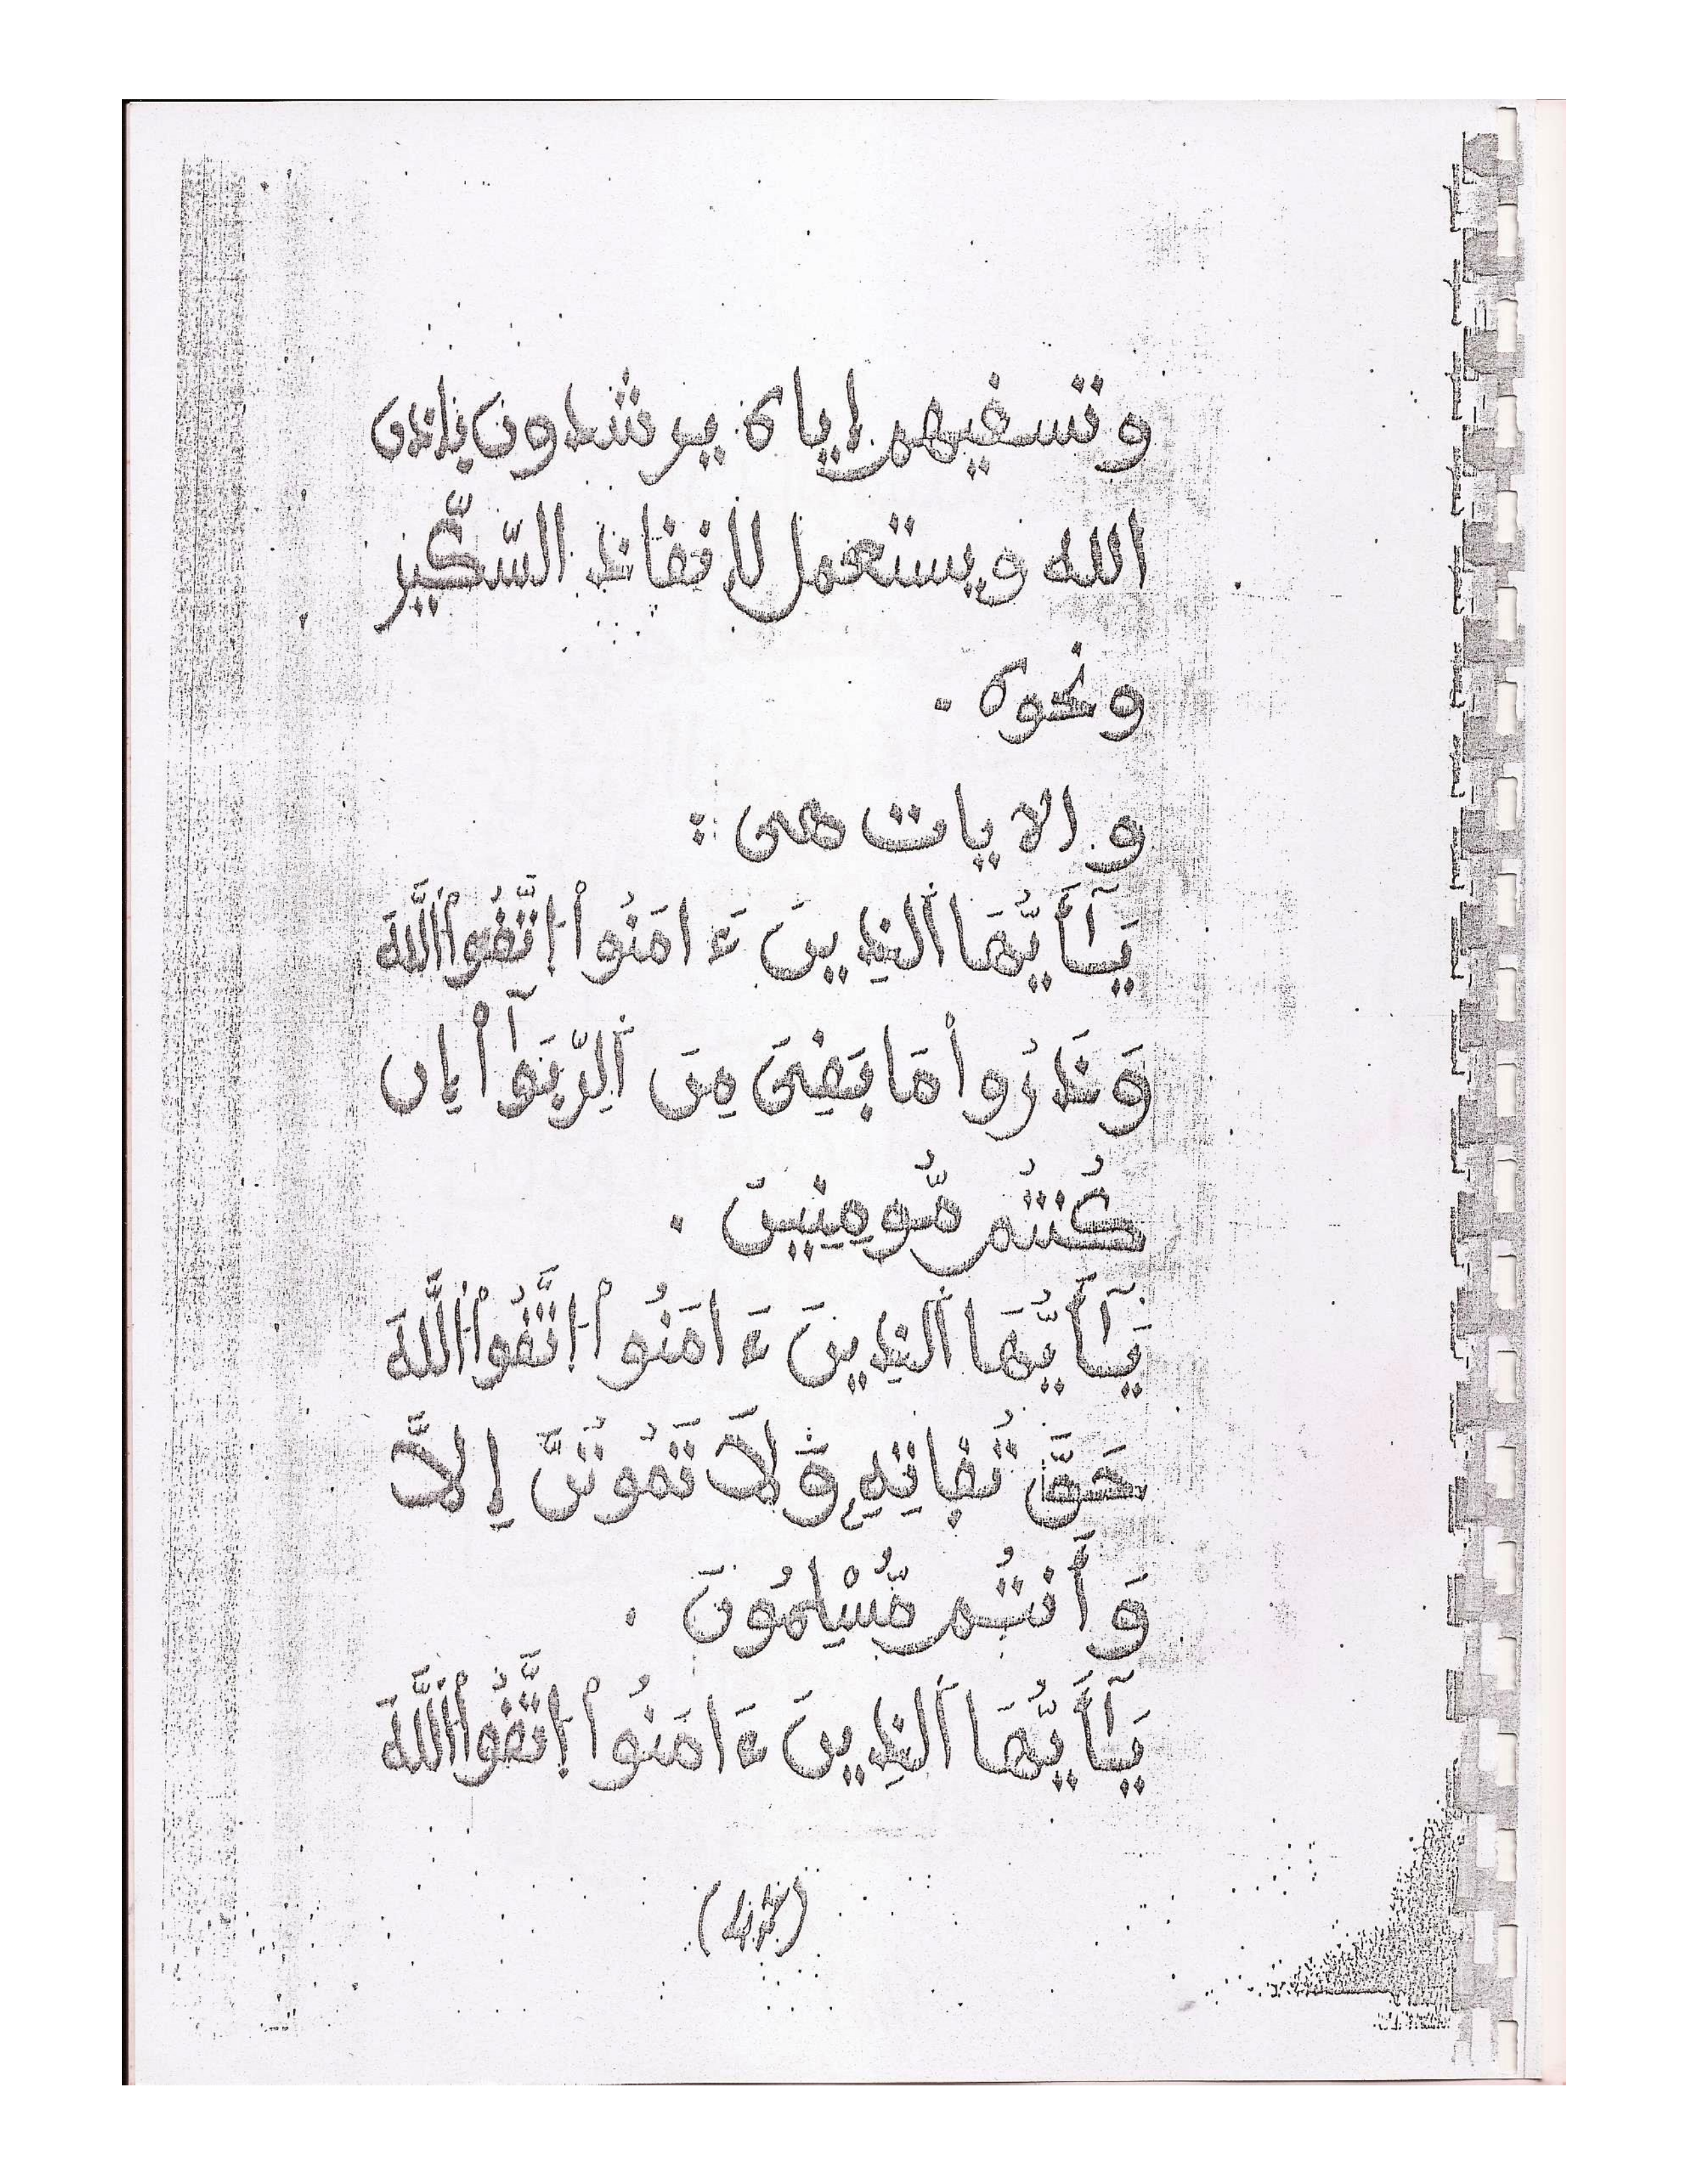 وتسفيهم إياه يرشدون بإذن
الله ويستعمل لإنقاذ السّكّير
ونحوه .
والايات هى :
يَـٰٓأَيُّهَا ٱلذِينَ ءَامَنُواْ اِتَّقُواْ اُللَّهَ
وَذَرُواْ مَا بَقِىَ مِنَ اَلرِّبَوٰٓاْ إِن
كُنتُم مُّومِنِينَ .
يَـٰٓأَيُّهَا ٱلذِينَ ءَامَنُواْ اِتَّقُواْ اُللَّهَ
حَقَّ تُقَاتِهِۦ وَلَا تَمُوتُنَّ إِلَّا
وَأَنتُم مُّسْلِمُونَ .
يَـٰٓأَيُّهَا ٱلذِينَ ءَامَنُواْ اِتَّقُواْ اُللَّهَ